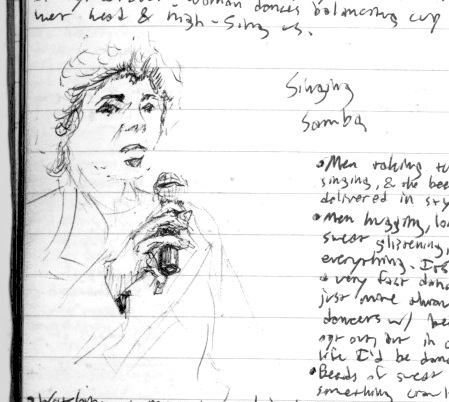 woman dances balancing cup
her head & high-sings as.
Singing
Samba
• Men taking tu
singing, & the bee
delivered in sty
• Men hugging, lo
sweat glistening,
everything.
a very fast danc
just more
dancers w/ be
out in a
life I'd be danc
• Beads of sweat
something crawl
• Watching